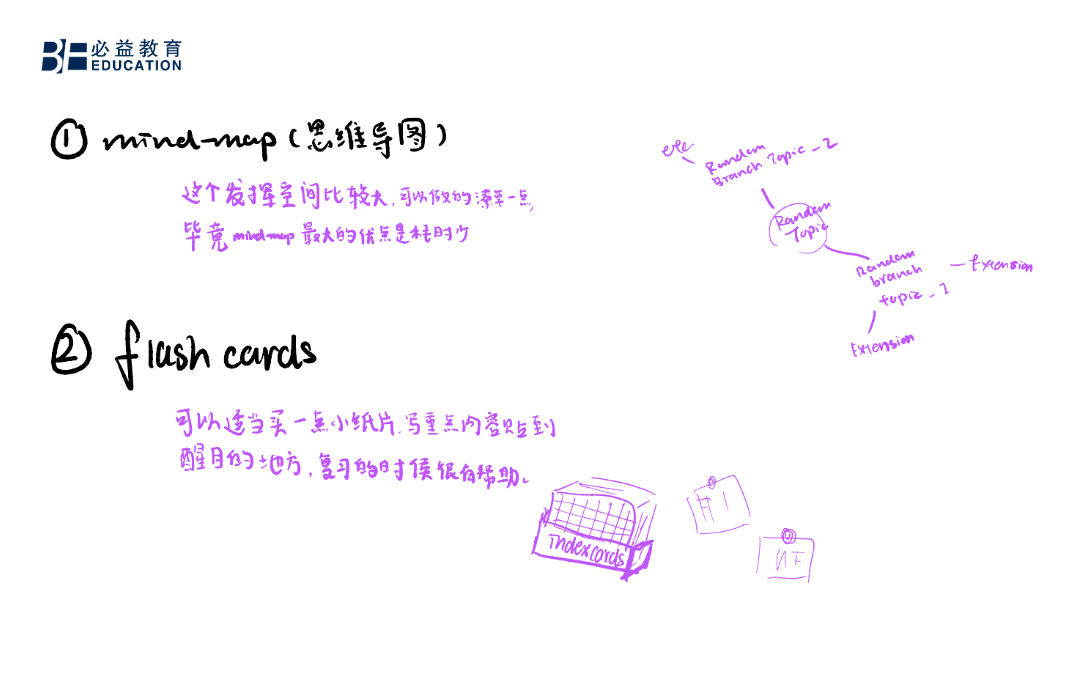 必益教育
EDUCATION
① mind-map (思维导图)
这个发挥空间比较大,可以做的潦草一点,
毕竟mind-map最大的优点是耗时少
etc
Random
Branch Topic_2
Random
Topic
Random
branch
topic_1
Extension
Extension
② flash cards
可以适当买一点小纸片,写重点内容贴到
醒目的地方,复习的时候很有帮助.
index cards